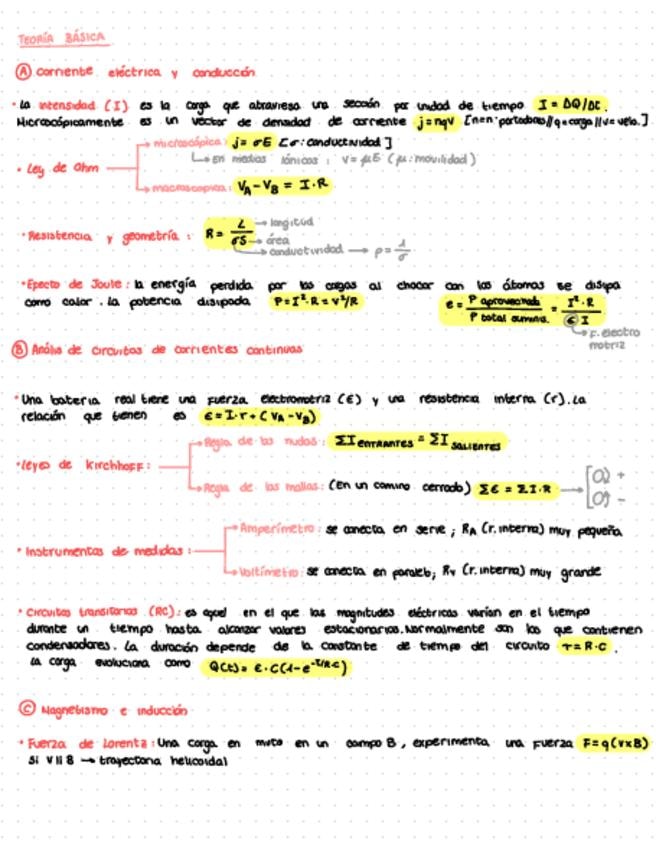 TEORÍA BÁSICA
Ⓐ corriente eléctrica y conducción
• La intensidad (I) es la carga que atraviesa una sección por unidad de tiempo I = ΔQ/Δt.
Microscópicamente es un vector de densidad de corriente j = nqv [n=nº portadores//q=carga//v=veloc.]
• Ley de Ohm
microscópica: j = σE [σ: conductividad]
En medios iónicos: v = μE (μ: movilidad)
macroscópica: VA - VB = I·R
• Resistencia y geometría: R = L/σS
longitud
área
conductividad → ρ = 1/σ
• Efecto de Joule: la energía perdida por las cargas al chocar con los átomos se disipa
como calor. La potencia disipada P = I²·R = V²/R
e = P aprovechada / P total sumins. = I²·R / ε I
F. electro
motriz
Ⓑ Anális de circuitos de corrientes continuas
• Una batería real tiene una fuerza electromotriz (ε) y una resistencia interna (r). La
relación que tienen es ε = I·r + (VA - VB)
• Leyes de Kirchhoff:
Regla de los nudos: ΣI ENTRANTES = ΣI SALIENTES
Regla de las mallas: (En un camino cerrado) Σε = ΣI·R
+
-
• Instrumentos de medidas:
Amperímetro: se conecta en serie; RA (r. interna) muy pequeña
Voltímetro: se conecta en paralelo; RV (r. interna) muy grande
• Circuitos transitorios (RC): es aquel en el que las magnitudes eléctricas varían en el tiempo
durante un tiempo hasta alcanzar valores estacionarios. Normalmente son los que contienen
condensadores. La duración depende de la constante de tiempo del circuito τ = R·C.
La carga evoluciona como Q(t) = ε·C(1-e^-t/RC)
Ⓒ Magnetismo e inducción
• Fuerza de Lorentz: Una carga en mvto en un campo B, experimenta una fuerza F = q(v×B)
Si V ∦ B → trayectoria helicoidal